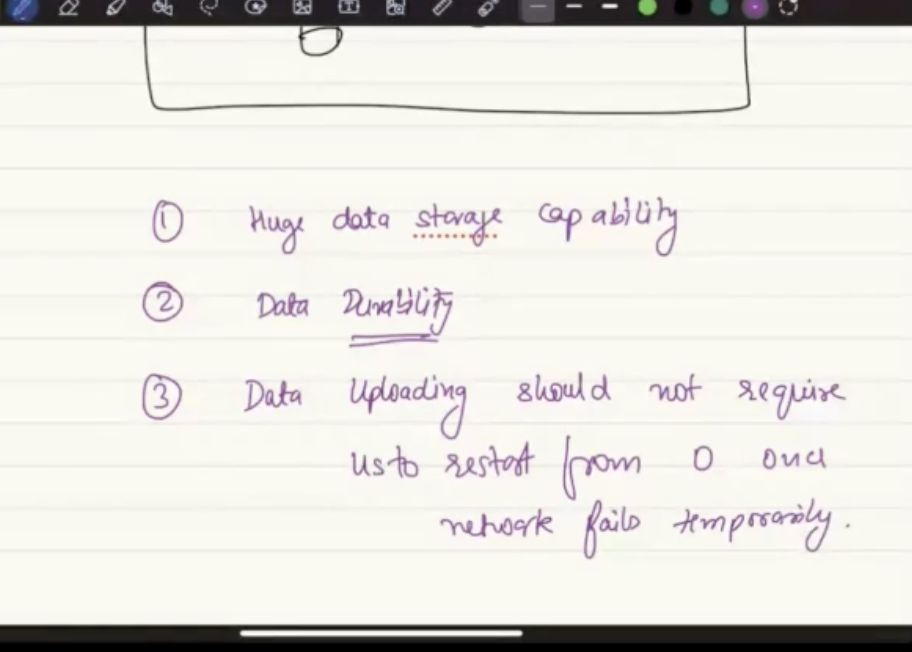 ① Huge data storage capability
② Data Durability
③ Data Uploading should not require
us to restart from 0 once
network fails temporarily.